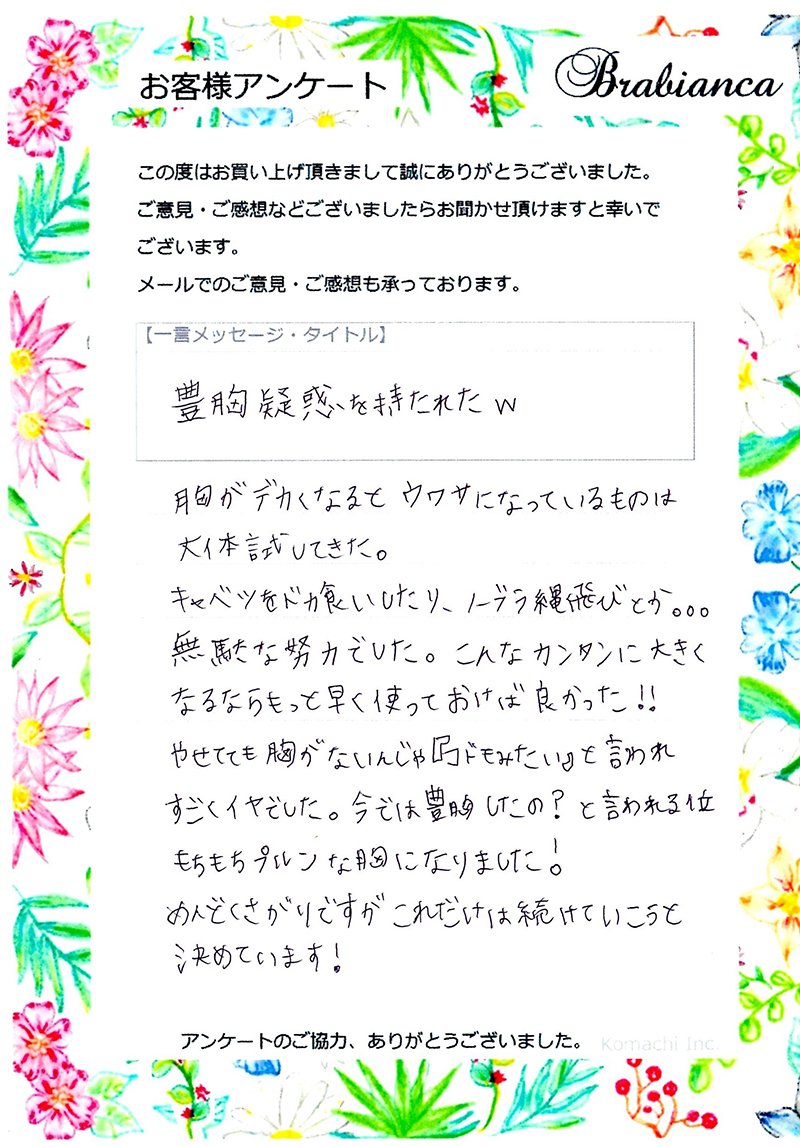 お客様アンケート
Brabianca
この度はお買い上げ頂きまして誠にありがとうございました。
ご意見・ご感想などございましたらお聞かせ頂けますと幸いで
ございます。
メールでのご意見・ご感想も承っております。
【一言メッセージ・タイトル】
豊胸疑惑を持たれたw
胸がデカくなるとウワサになっているものは
大体試してきた。
キャベツをドカ食いしたり、ノーブラ縄飛びとか。。。
無駄な努力でした。こんなカンタンに大きく
なるならもっと早く使っておけば良かった!!
やせてても胸がないんじゃ『子ドもみたい』と言われ
すごくイヤでした。今では豊胸したの?と言われる位
もちもちプルンな胸になりました!
めんどくさがりですがこれだけは続けていこうと
決めています!
アンケートのご協力、ありがとうございました。
Komachi Inc.